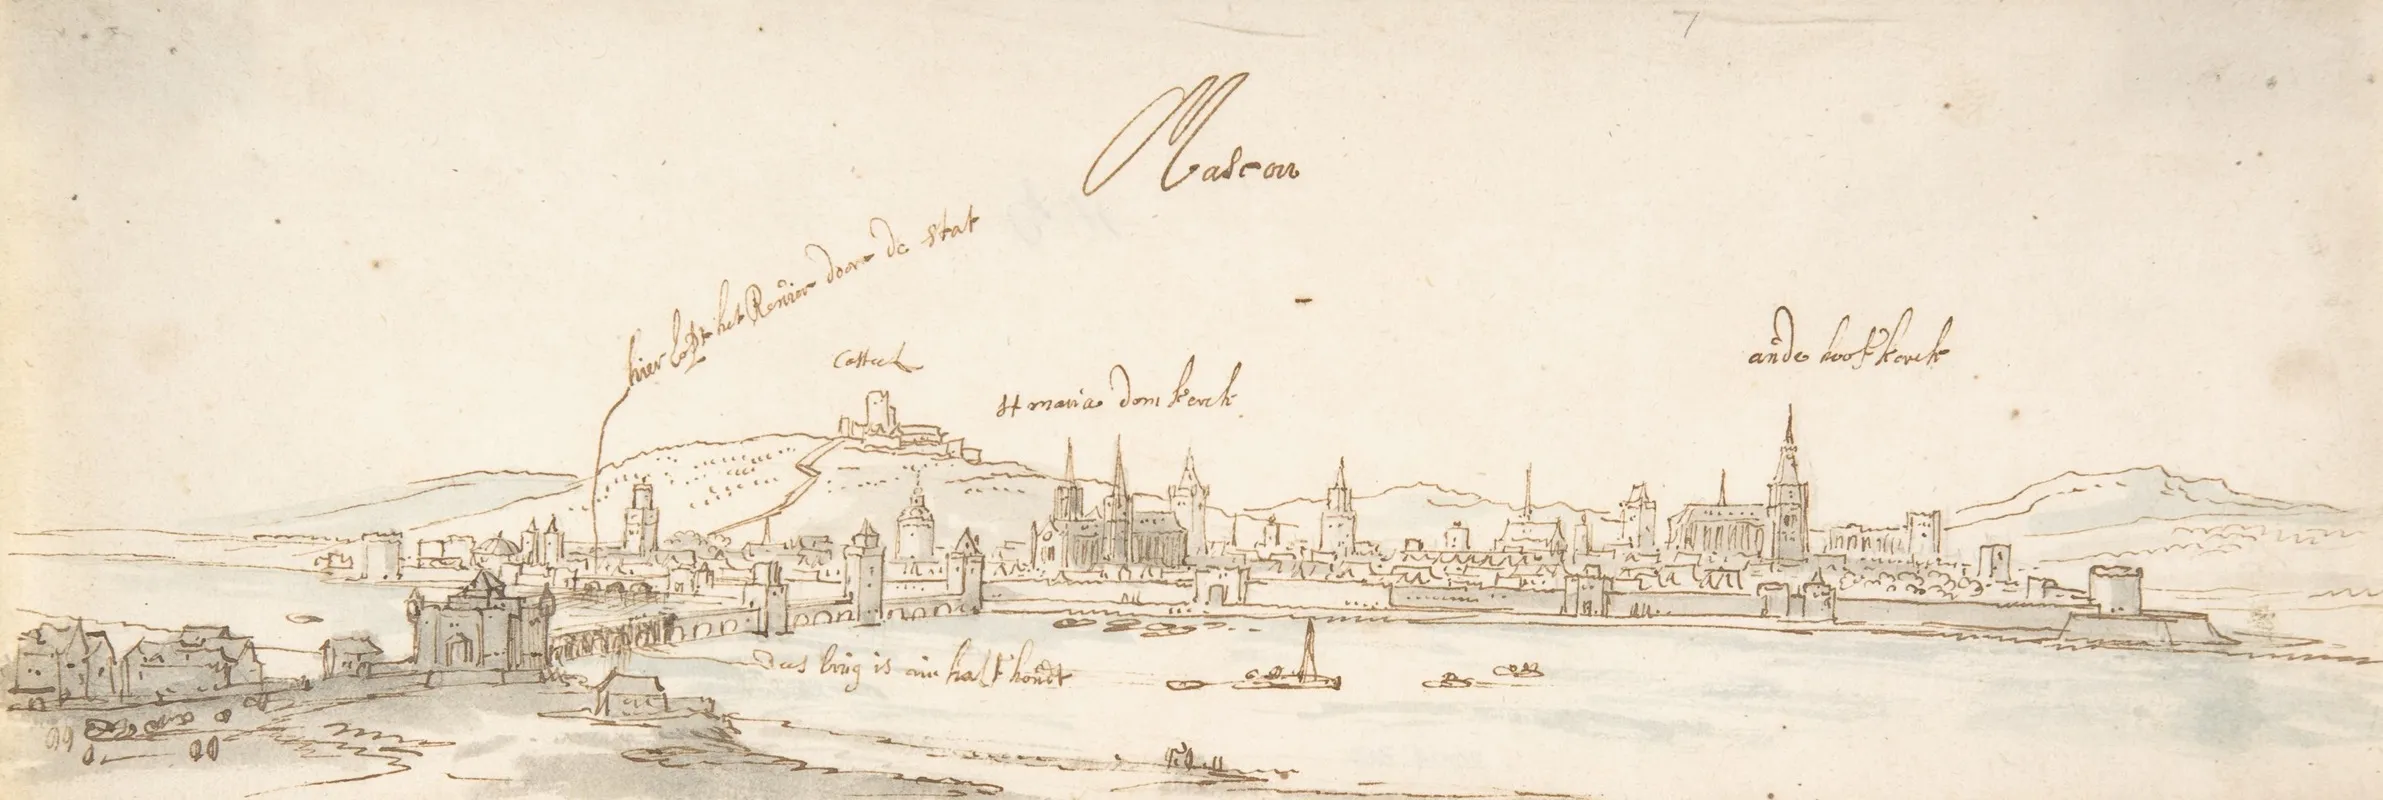 Mascon
hier lopt het Revier door de stat
Casteel
St maria dom kerck
ande hooft kerck
Das brug is ein half hondt